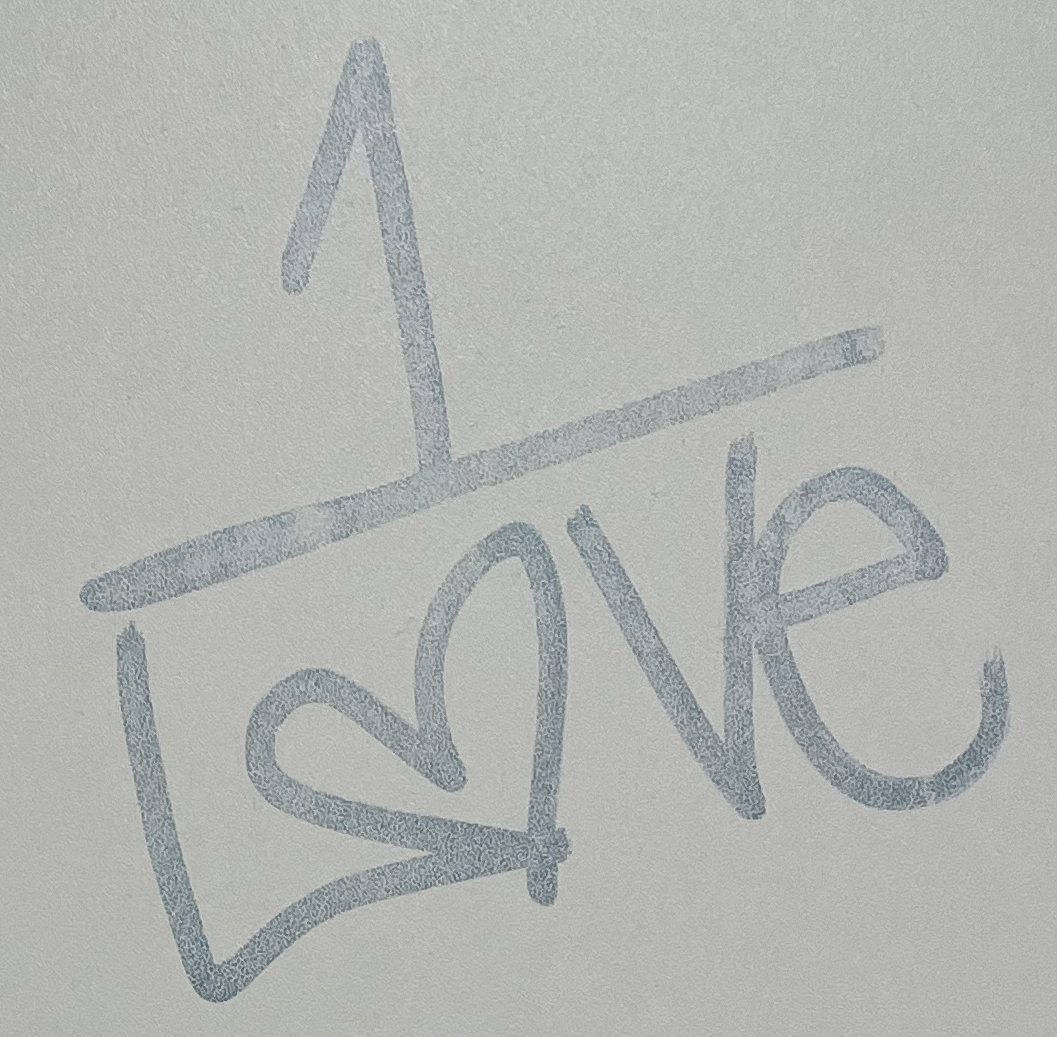 1
L♡ve